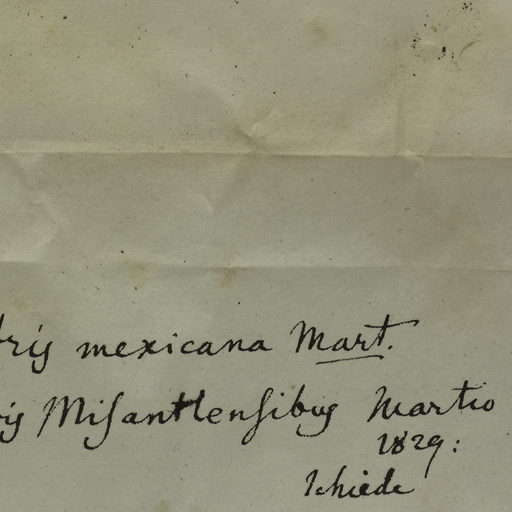 mexicana Mart.
Misantlensibus Martio
1829:
Schiede